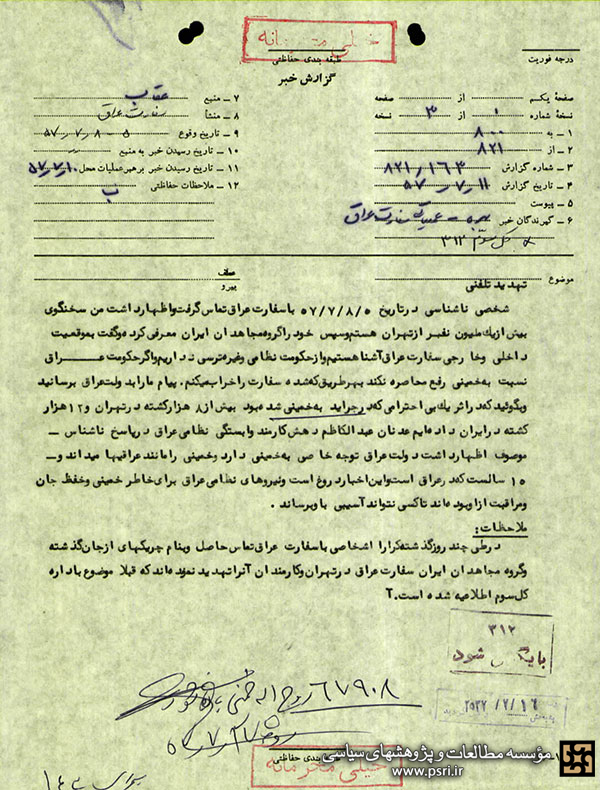 خیلی محرمانه
طبقه بندی حفاظتی
درجه فوریت
گزارش خبر
صفحهٔ یکم از صفحه
نسخهٔ شماره ۱ از ۳ نسخه
۱ ــ به ۸۰۰
۲ ــ از ۸۲۱
۳ ــ شماره گزارش ۸۲۱٫۱۶۳
۴ ــ تاریخ گزارش ۵۷٫۷٫۱۱
۵ ــ پیوست
۶ ــ گیرندگان خبر
۳۱۲
۷ ــ منبع عقاب
۸ ــ منشأ سفارت عراق
۹ ــ تاریخ وقوع ۵۷٫۷٫۸ــ۵
۱۰ ــ تاریخ رسیدن خبر به منبع
۱۱ ــ تاریخ رسیدن خبر برهبر عملیات محل ۵۷٫۷٫۱۰
۱۲ ــ ملاحظات حفاظتی
موضوع تهدید تلفنی
عطف
پیرو
شخصی ناشناسی درتاریخ ۵۷/۷/۸/۵ با سفارت عراق تماس گرفت واظهارداشت من سخنگوی
بیش ازیک ملیون نفر ازتهران هستم وسپس خود راگروه مجاهدان ایران معرفی کرد وگفت بموقعیت
داخلی وخارجی سفارت عراق آشنا هستیم وازحکومت نظامی وغیره ترسی نداریم واگرحکومت عـــراق
نسبت به خمینی رفع محاصره نکند بهرطریق که شده سفارت راخراب میکنم . پیام مارا بدولت عراق برسانید
وبگوئید که دراثریک بی احترامی که درجراید به خمینی شده بود بیش از۸ هزارکشته درتهران و۱۲هزار
کشته درایران داده ایم عدنان عبدالکاظم دهش کارمند وابستگی نظامی عراق درپاسخ ناشناس ــ
موصوف اظهارداشت دولت عراق توجه خاصی به خمینی دارد وخمینی رامانند عراقیها میداند وــ
۱۵ سالست که درعراق است واین اخبار دروغ است ونیروهای نظامی عراق برای خاطر خمینی وحفظ جان
ومراقبت ازاوبوده اند تاکسی نتواند آسیبی باوبرساند .
ملاحظات :
درطی چند روزگذشته کرارا اشخاصی باسفارت عراق تماس حاصل وبنام چریکهای ازجان گذشته
وگروه مجاهدان ایران سفارت عراق درتهران وکارمندان آنرا تهدید نموده اند که قبلا موضوع باداره
کل سوم اطلاعیه شده است. آ
۳۱۲
بایگانی شود
۲۵۳۷/۷/۱۶
۶۷۹۰۸ روح اله خمینی
طبقه بندی حفاظتی
خیلی محرمانه
مؤسسه مطالعات و پژوهشهای سیاسی
www.psri.ir